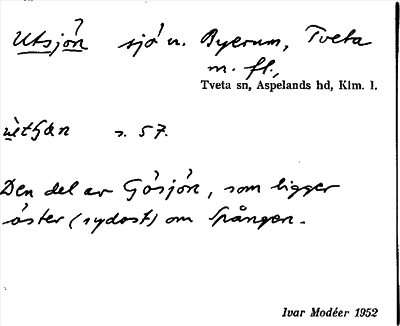 Utsjön sjö n. Byerum, Tveta
m. fl.,
Tveta sn, Aspelands hd, Klm. l.
s. 57.
Den del av Gösjön, som ligger
öster (sydost) om Spången.
Ivar Modéer 1952